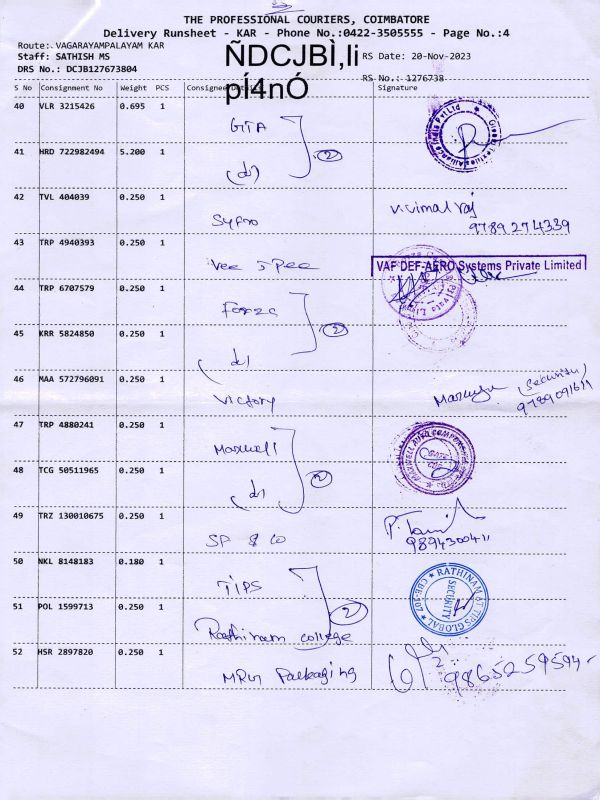 THE PROFESSIONAL COURIERS, COIMBATORE
Delivery Runsheet - KAR - Phone No.:0422-3505555 - Page No.:4
Route: VAGARAYAMPALAYAM KAR
Staff: SATHISH MS
ÑDCJBÌ,li
RS Date: 20-Nov-2023
DRS No.: DCJB127673804
pÍ4nÓ
RS No.: 1276738
S No Consignment No Weight PCS Consignee Details Signature
40 VLR 3215426 0.695 1 GTA
41 HRD 722982494 5.200 1 (d) 2
42 TVL 404039 0.250 1 Syfro V.vimal raj
9789274339
43 TRP 4940393 0.250 1 Vee 5 Pee VAF DEF-AERO Systems Private Limited
44 TRP 6707579 0.250 1 Forza 2
45 KRR 5824850 0.250 1 (d)
46 MAA 572796091 0.250 1 Victory (Security)
47 TRP 4880241 0.250 1 Maxwell
48 TCG 50511965 0.250 1 (d) 2
49 TRZ 130010675 0.250 1 SP & co
9894300411
50 NKL 8148183 0.180 1 TIPS RATHINAM
SECURITY
TIPS GLOBAL
51 POL 1599713 0.250 1 Rathinam college 2
52 HSR 2897820 0.250 1 MRG Packaging 9865259594